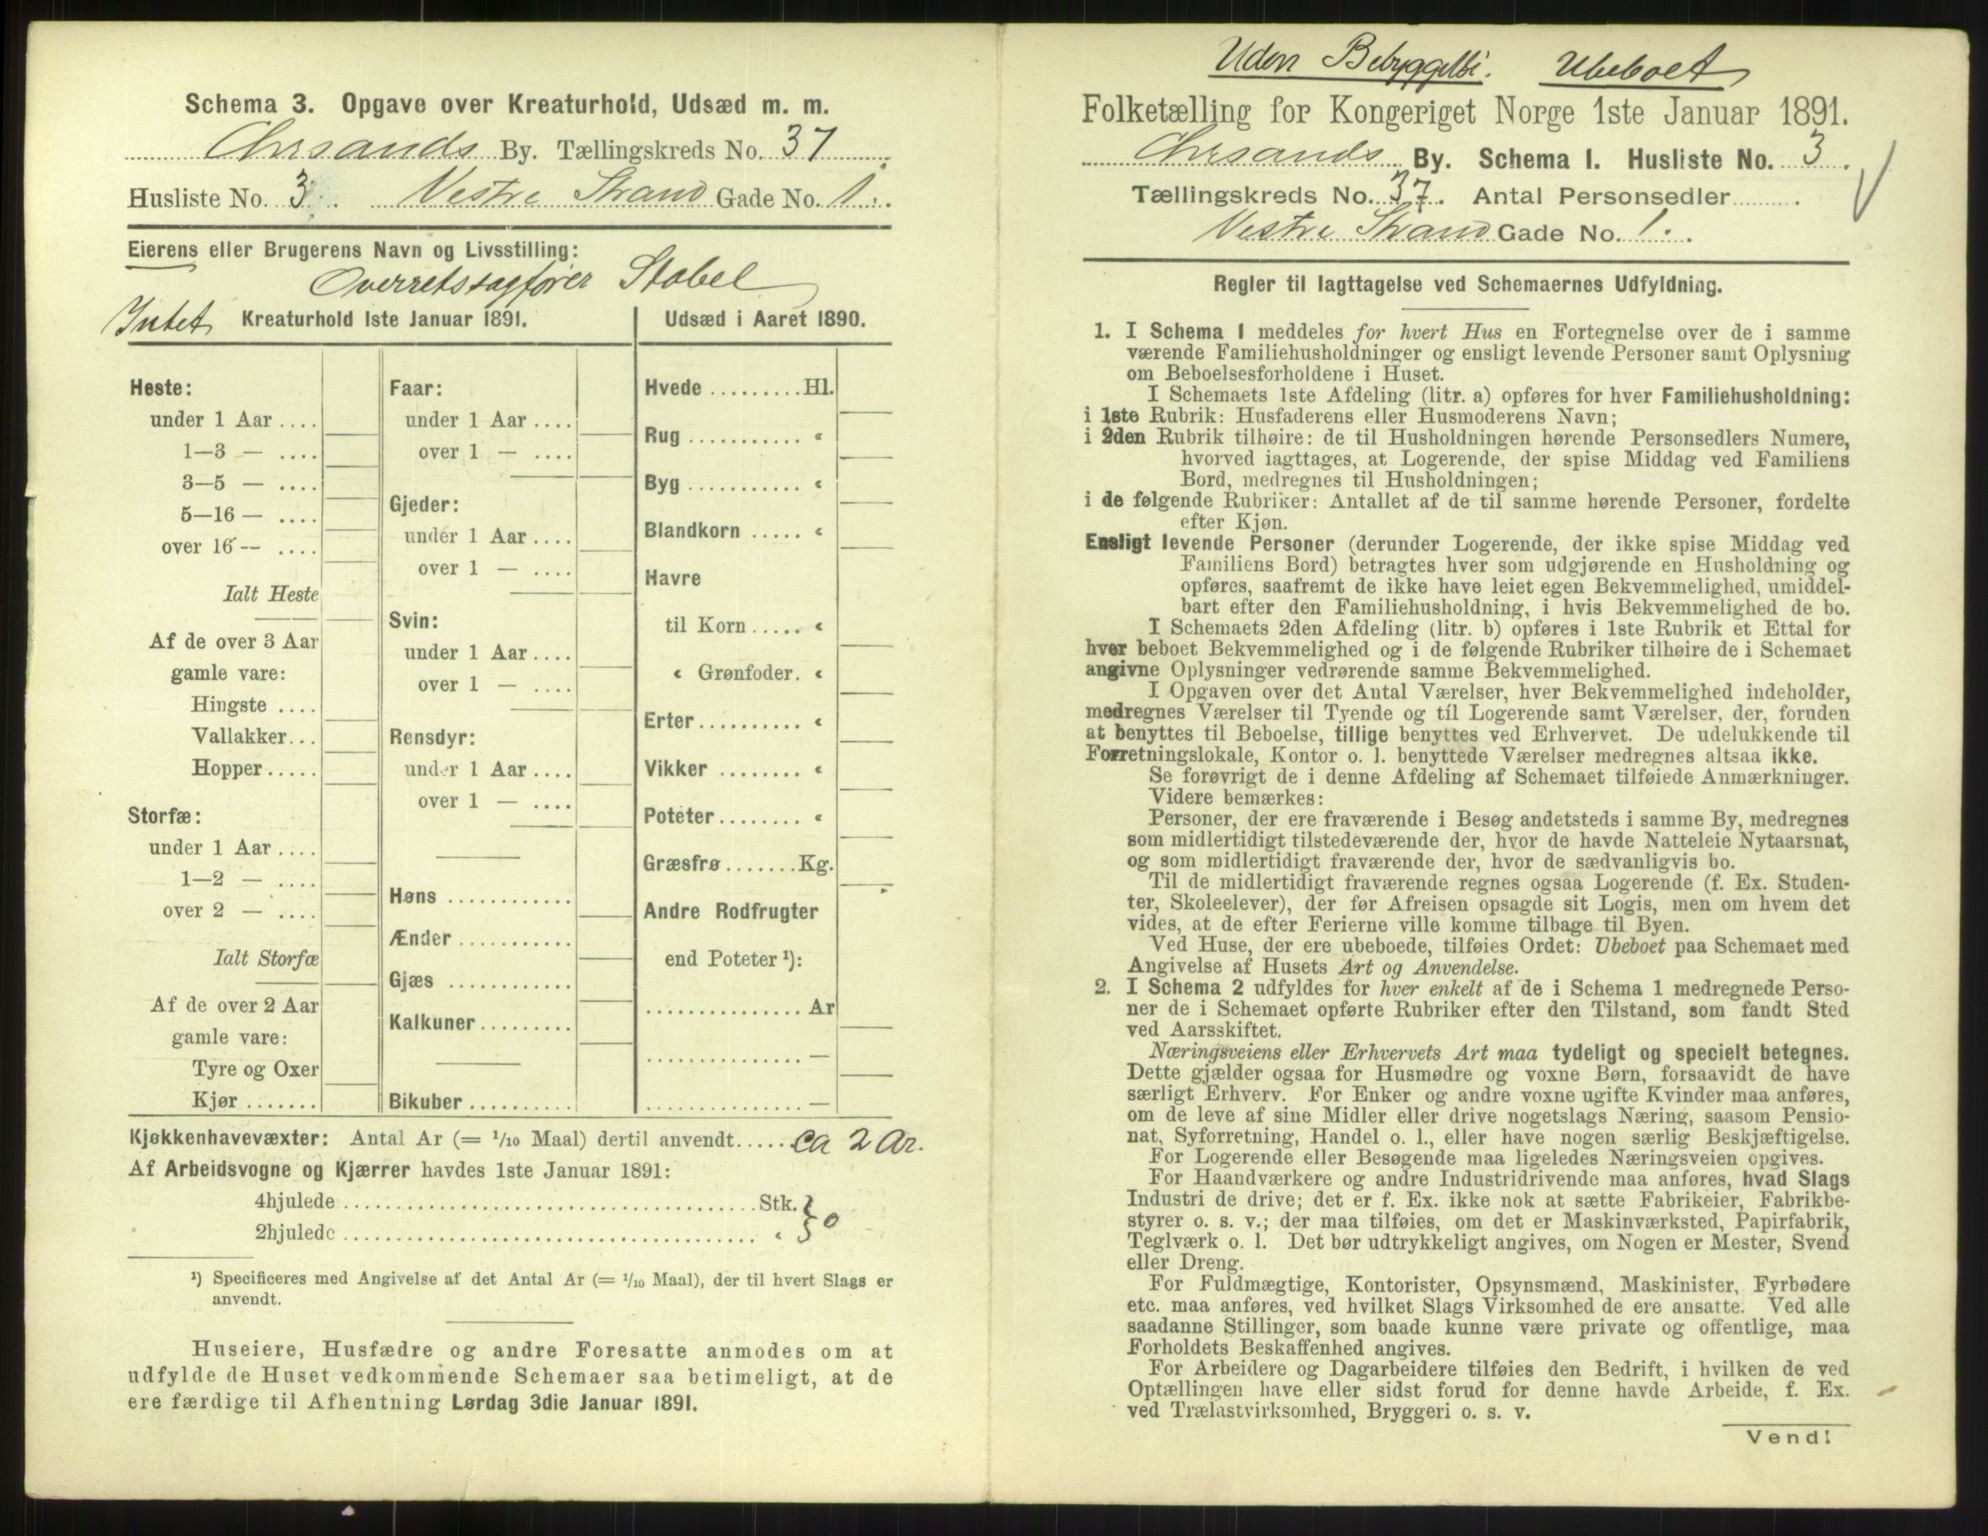 Schema 3. Opgave over Kreaturhold, Udsæd m. m.
Chrsands By. Tællingskreds No. 37
Husliste No. 3. Vestre Strand Gade No. 1.
Eierens eller Brugerens Navn og Livsstilling:
Overretssagfører Stabel
Intet Kreaturhold 1ste Januar 1891.
Heste:
under 1 Aar ....
1—3 — ....
3—5 — ....
5—16 — ....
over 16 — ....
Ialt Heste
Af de over 3 Aar
gamle vare:
Hingste ....
Vallakker...
Hopper.....
Storfæ:
under 1 Aar ....
1—2 — ....
over 2 — ....
Ialt Storfæ
Af de over 2 Aar
gamle vare:
Tyre og Oxer
Kjør .......
Faar:
under 1 Aar ....
over 1 — ....
Gjeder:
under 1 Aar ....
over 1 — ....
Svin:
under 1 Aar ....
over 1 — ....
Rensdyr:
under 1 Aar ....
over 1 — ....
Høns ............
Ænder ...........
Gjæs ............
Kalkuner.........
Bikuber ..........
Udsæd i Aaret 1890.
Hvede .........Hl.
Rug ........... «
Byg ........... «
Blandkorn ..... «
Havre
til Korn ..... «
« Grønfoder. «
Erter.......... «
Vikker ........ «
Poteter........ «
Græsfrø .......Kg.
Andre Rodfrugter
end Poteter ¹):
............... Ar
............... —
............... —
Kjøkkenhavevæxter: Antal Ar (= 1/10 Maal) dertil anvendt...... ca 2 Ar.
Af Arbeidsvogne og Kjærrer havdes 1ste Januar 1891:
4hjulede ..................................... Stk. } 0
2hjulede ..................................... «
¹) Specificeres med Angivelse af det Antal Ar (= 1/10 Maal), der til hvert Slags er
anvendt.
Huseiere, Husfædre og andre Foresatte anmodes om at
udfylde de Huset vedkommende Schemaer saa betimeligt, at de
ere færdige til Afhentning Lørdag 3die Januar 1891.
Uden Bebyggelse. Ubeboet
Folketælling for Kongeriget Norge 1ste Januar 1891.
Chrsands By. Schema 1. Husliste No. 3.
Tællingskreds No. 37. Antal Personsedler .........
Vestre Strand Gade No. 1.
Regler til Iagttagelse ved Schemaernes Udfyldning.
1. I Schema 1 meddeles for hvert Hus en Fortegnelse over de i samme
værende Familiehusholdninger og ensligt levende Personer samt Oplysning
om Beboelsesforholdene i Huset.
I Schemaets 1ste Afdeling (litr. a) opføres for hver Familiehusholdning:
i 1ste Rubrik: Husfaderens eller Husmoderens Navn;
i 2den Rubrik tilhøire: de til Husholdningen hørende Personsedlers Numere,
hvorved iagttages, at Logerende, der spise Middag ved Familiens
Bord, medregnes til Husholdningen;
i de følgende Rubriker: Antallet af de til samme hørende Personer, fordelte
efter Kjøn.
Ensligt levende Personer (derunder Logerende, der ikke spise Middag ved
Familiens Bord) betragtes hver som udgjørende en Husholdning og
opføres, saafremt de ikke have leiet egen Bekvemmelighed, umiddel-
bart efter den Familiehusholdning, i hvis Bekvemmelighed de bo.
I Schemaets 2den Afdeling (litr. b) opføres i 1ste Rubrik et Ettal for
hver beboet Bekvemmelighed og i de følgende Rubriker tilhøire de i Schemaet
angivne Oplysninger vedrørende samme Bekvemmelighed.
I Opgaven over det Antal Værelser, hver Bekvemmelighed indeholder,
medregnes Værelser til Tyende og til Logerende samt Værelser, der, foruden
at benyttes til Beboelse, tillige benyttes ved Erhvervet. De udelukkende til
Forretningslokale, Kontor o. l. benyttede Værelser medregnes altsaa ikke.
Se forøvrigt de i denne Afdeling af Schemaet tilføiede Anmærkninger.
Videre bemærkes:
Personer, der ere fraværende i Besøg andetsteds i samme By, medregnes
som midlertidigt tilstedeværende der, hvor de havde Natteleie Nytaarsnat,
og som midlertidigt fraværende der, hvor de sædvanligvis bo.
Til de midlertidigt fraværende regnes ogsaa Logerende (f. Ex. Studen-
ter, Skoleelever), der før Afreisen opsagde sit Logis, men om hvem det
vides, at de efter Ferierne ville komme tilbage til Byen.
Ved Huse, der ere ubeboede, tilføies Ordet: Ubeboet paa Schemaet med
Angivelse af Husets Art og Anvendelse.
2. I Schema 2 udfyldes for hver enkelt af de i Schema 1 medregnede Perso-
ner de i Schemaet opførte Rubriker efter den Tilstand, som fandt Sted
ved Aarsskiftet.
Næringsveiens eller Erhvervets Art maa tydeligt og specielt betegnes.
Dette gjælder ogsaa for Husmødre og voxne Børn, forsaavidt de have
særligt Erhverv. For Enker og andre voxne ugifte Kvinder maa anføres,
om de leve af sine Midler eller drive nogetslags Næring, saasom Pensio-
nat, Syforretning, Handel o. l., eller have nogen særlig Beskjæftigelse.
For Logerende eller Besøgende maa ligeledes Næringsveien opgives.
For Haandværkere og andre Industridrivende maa anføres, hvad Slags
Industri de drive; det er f. Ex. ikke nok at sætte Fabrikeier, Fabrikbe-
styrer o. s. v.; der maa tilføies, om det er Maskinværksted, Papirfabrik,
Teglværk o. l. Det bør udtrykkeligt angives, om Nogen er Mester, Svend
eller Dreng.
For Fuldmægtige, Kontorister, Opsynsmænd, Maskinister, Fyrbødere
etc. maa anføres, ved hvilket Slags Virksomhed de ere ansatte. Ved alle
saadanne Stillinger, som baade kunne være private og offentlige, maa
Forholdets Beskaffenhed angives.
For Arbeidere og Dagarbeidere tilføies den Bedrift, i hvilken de ved
Optællingen have eller sidst forud for denne havde Arbeide, f. Ex.
ved Trælastvirksomhed, Bryggeri o. s. v.
Vend!